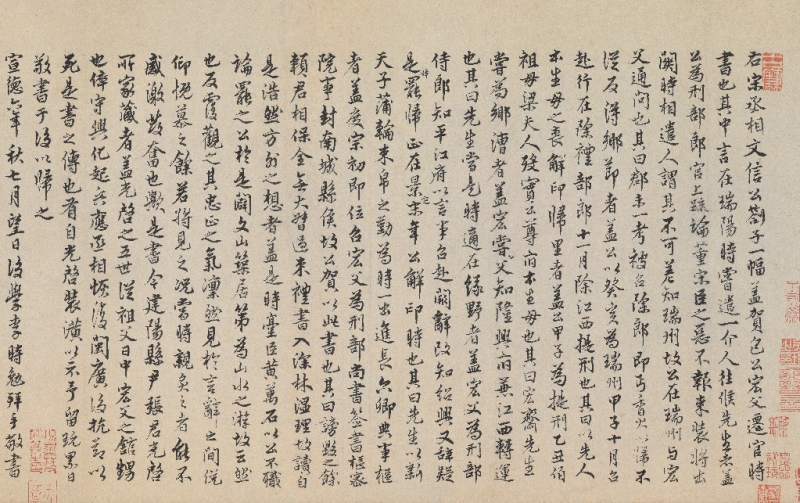 右宋丞相文信公劄子一幅蓋賀包公宏父遷官時
書也其中言在瑞陽時嘗遣一介人往候先生者蓋
公為刑部郎官上疏論董宋臣之惡不報束裝將出
關時相遣人謂其不可差知瑞州故公在瑞州与宏
父通問也其曰郡未一考稽召除郎即丐香火以歸不
從反得鄉節者蓋公以癸亥為瑞州甲子十月召
赴行在除禮部郎十一月除江西提刑也其曰以先人
本生母之喪解印歸里者蓋公甲子為提刑乙丑伯
祖母梁夫人歿實公尊府本生母也其曰宏齋先生
嘗為鄉漕者蓋宏齋父知隆興府兼江西轉運
也其曰先生當是時適在綠野者蓋宏父為刑部
侍郎知平江府以言事召赴闕辭改知紹興又辭疑
是罷歸正在景定年公解印時也其曰先生以新
天子蒲輪束帛之勤為時一出進長六卿典事樞
者蓋度宗初即位召宏父為刑部尚書簽書樞密
院事封南城縣侯故公賀以此書也其曰謗毀之餘
賴君相保全無大瞽過來禮書入深林溫理故讀自
是浩然方外之想者蓋是時臺臣黃萬石以公不職
論罷之公於是闢文山築居第為山水之游故云然
也反覆觀之其忠正之氣凜然見於言辭之間俛
仰悒慕之餘若將見之況當時親炙之者能不
感激奮也歟是書今建陽縣尹張君光啓
所家藏者蓋光啓之五世從祖父日中宏父之館甥
也倅守興化起兵應丞相恢復閩廣後抗節以
死是書之傳也有自光啓裝潢以示予留玩累日
敬書于後以歸之
宣德六年秋七月望日後學李時勉拜手敬書